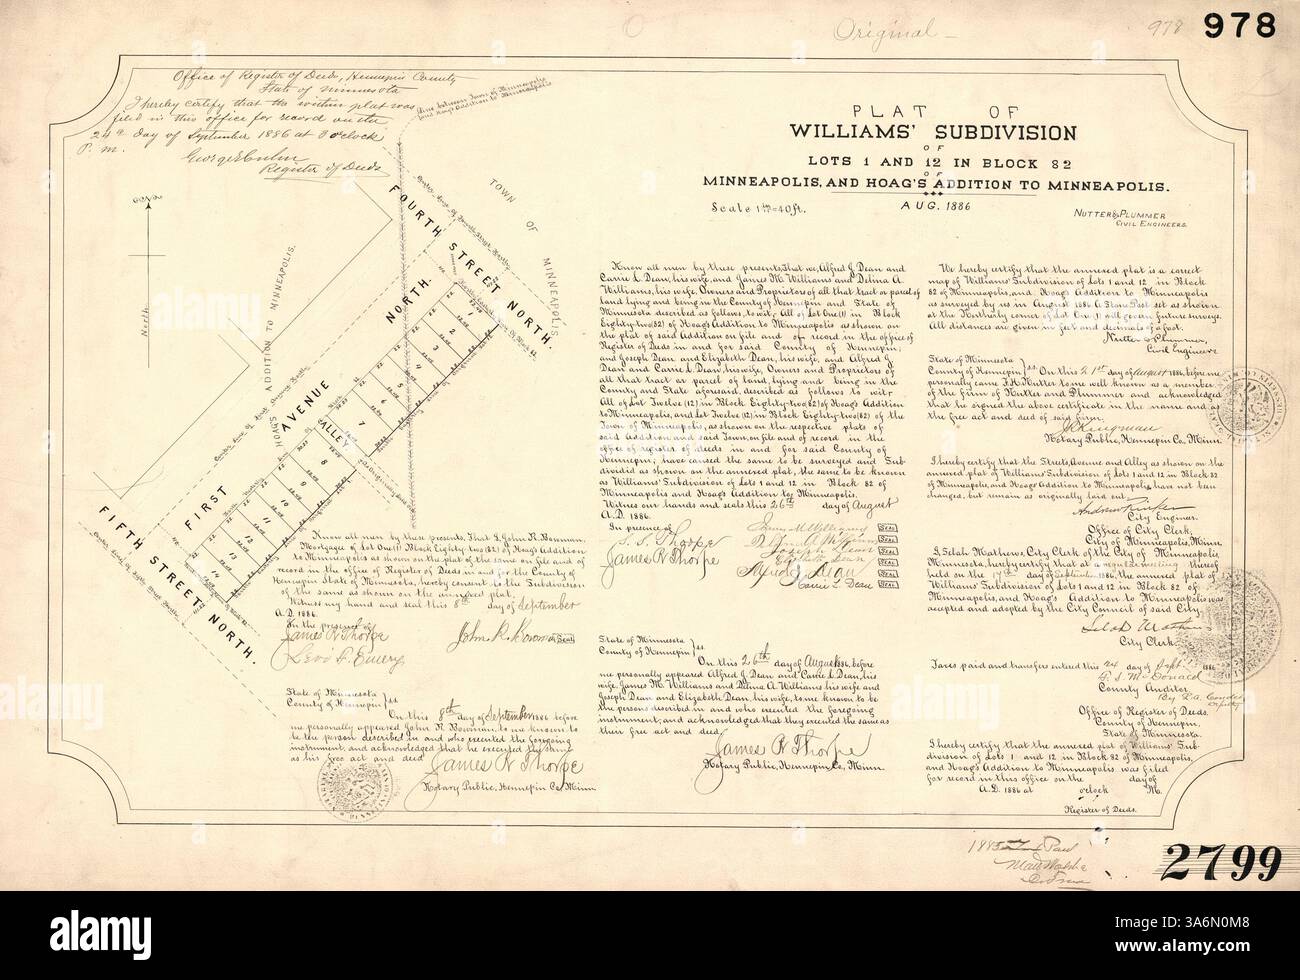 Original
978
978
Office of Register of Deeds, Hennepin County
State of Minnesota
I hereby certify that the within plat was
filed in this office for record on the
24th day of September 1886 at 3 o'clock
P. M.
Register of Deeds
Line between Town of Minneapolis
and Hoag's Addition to Minneapolis
PLAT OF
WILLIAMS' SUBDIVISION
OF
LOTS 1 AND 12 IN BLOCK 82
OF
MINNEAPOLIS, AND HOAG'S ADDITION TO MINNEAPOLIS.
AUG. 1886
Scale 1 in = 40 ft.
NUTTER & PLUMMER
CIVIL ENGINEERS
North
HOAG'S ADDITION TO MINNEAPOLIS.
TOWN OF MINNEAPOLIS
FOURTH STREET NORTH.
FIRST AVENUE NORTH.
FIFTH STREET NORTH.
ALLEY
1
2
3
4
5
6
7
8
9
10
11
12
13
14
Know all men by these presents, That we, Alfred J. Dean and
Carrie L. Dean, his wife, and James M. Williams and Delina A.
Williams, his wife, Owners and Proprietors of all that tract or parcel of
land lying and being in the County of Hennepin and State of
Minnesota described as follows to wit, All of Lot One (1) in Block
Eighty-two (82) of Hoag's Addition to Minneapolis as shown on
the plat of said Addition on file and of record in the office of
Register of Deeds in and for said County of Hennepin;
and Joseph Dean and Elizabeth Dean, his wife, and Alfred J.
Dean and Carrie L. Dean, his wife, Owners and Proprietors of
all that tract or parcel of land, lying and being in the
County and State aforesaid, described as follows to wit,
All of Lot Twelve (12) in Block Eighty-two (82) of Hoag's Addition
to Minneapolis, and Lot Twelve (12) in Block Eighty-two (82) of the
Town of Minneapolis, as shown on the respective plats of
said Addition and said Town, on file and of record in the
office of register of deeds in and for said County of
Hennepin; have caused the same to be surveyed and Sub-
divided as shown on the annexed plat, the same to be known
as Williams' Subdivision of Lots 1 and 12 in Block 82 of
Minneapolis and Hoag's Addition to Minneapolis.
Witness our hands and seals this 26th day of August
A.D. 1886.
In presence of
S. S. Thorpe
James R Thorpe
James M Williams Seal
Delina A. Williams Seal
Joseph Dean Seal
Seal
Alfred J. Dean Seal
Carrie L. Dean Seal
State of Minnesota
County of Hennepin } ss
On this 26th day of August 1886, before
me personally appeared Alfred J. Dean and Carrie L. Dean, his
wife, James M. Williams and Delina A. Williams, his wife and
Joseph Dean and Elizabeth Dean, his wife, to me known to be
the persons described in and who executed the foregoing
instrument; and acknowledged that they executed the same as
their free act and deed.
James R Thorpe
Notary Public, Hennepin Co., Minn.
Know all men by these presents, That I, John R. Bowman,
Mortgagee of Lot One (1) Block Eighty-two (82) of Hoag's Addition
to Minneapolis as shown on the plat of the same on file and of
record in the office of Register of Deeds in and for the County of
Hennepin State of Minnesota, hereby consent to the Subdivision
of the same as shown on the annexed plat.
Witness my hand and seal this 8th day of September
A.D. 1886.
In the presence of
James R Thorpe
Levi F. Emery
John R. Bowman Seal
State of Minnesota
County of Hennepin } ss
On this 8th day of September 1886 before
me personally appeared John R. Bowman, to me known to
be the person described in and who executed the foregoing
instrument, and acknowledged that he executed the same
as his free act and deed
James R Thorpe
Notary Public, Hennepin Co., Minn
We hereby certify that the annexed plat is a correct
map of Williams' Subdivision of Lots 1 and 12 in Block
82 of Minneapolis, and Hoag's Addition to Minneapolis
as surveyed by us in August 1886. A Stone Post set as shown
at the Northerly corner of Lot One (1) will govern future surveys.
All distances are given in feet and decimals of a foot.
Nutter & Plummer,
Civil Engineers
State of Minnesota
County of Hennepin } ss On this 21st day of August 1886, before me
personally came F. H. Nutter to me well known as a member
of the firm of Nutter and Plummer and acknowledged
that he signed the above certificate in the name and as
the free act and deed of said firm.
Notary Public, Hennepin Co., Minn.
I hereby certify that the Streets, Avenue and Alley as shown on the
annexed plat of Williams' Subdivision of Lots 1 and 12 in Block 82
of Minneapolis, and Hoag's Addition to Minneapolis, have not been
changed, but remain as originally laid out.
Andrew Rinker
City Engineer.
Office of City Clerk,
City of Minneapolis, Minn.
I, Selah Mathews, City Clerk of the City of Minneapolis,
Minnesota, hereby certify that at a regular meeting thereof
held on the 17th day of September 1886, the annexed plat of
Williams' Subdivision of Lots 1 and 12 in Block 82 of
Minneapolis, and Hoag's Addition to Minneapolis was
accepted and adopted by the City Council of said City.
Selah Mathews
City Clerk.
Taxes paid and transfers entered this 24 day of Sept. 1886
McDonald
County Auditor.
Deputy
Office of Register of Deeds.
County of Hennepin,
State of Minnesota.
I hereby certify that the annexed plat of Williams' Sub-
division of Lots 1 and 12 in Block 82 of Minneapolis,
and Hoag's Addition to Minneapolis was filed
for record in this office on the day of
A.D. 1886 at o'clock M.
Register of Deeds.
2799
alamy
alamy
Image ID: 3A6N0M8
www.alamy.com